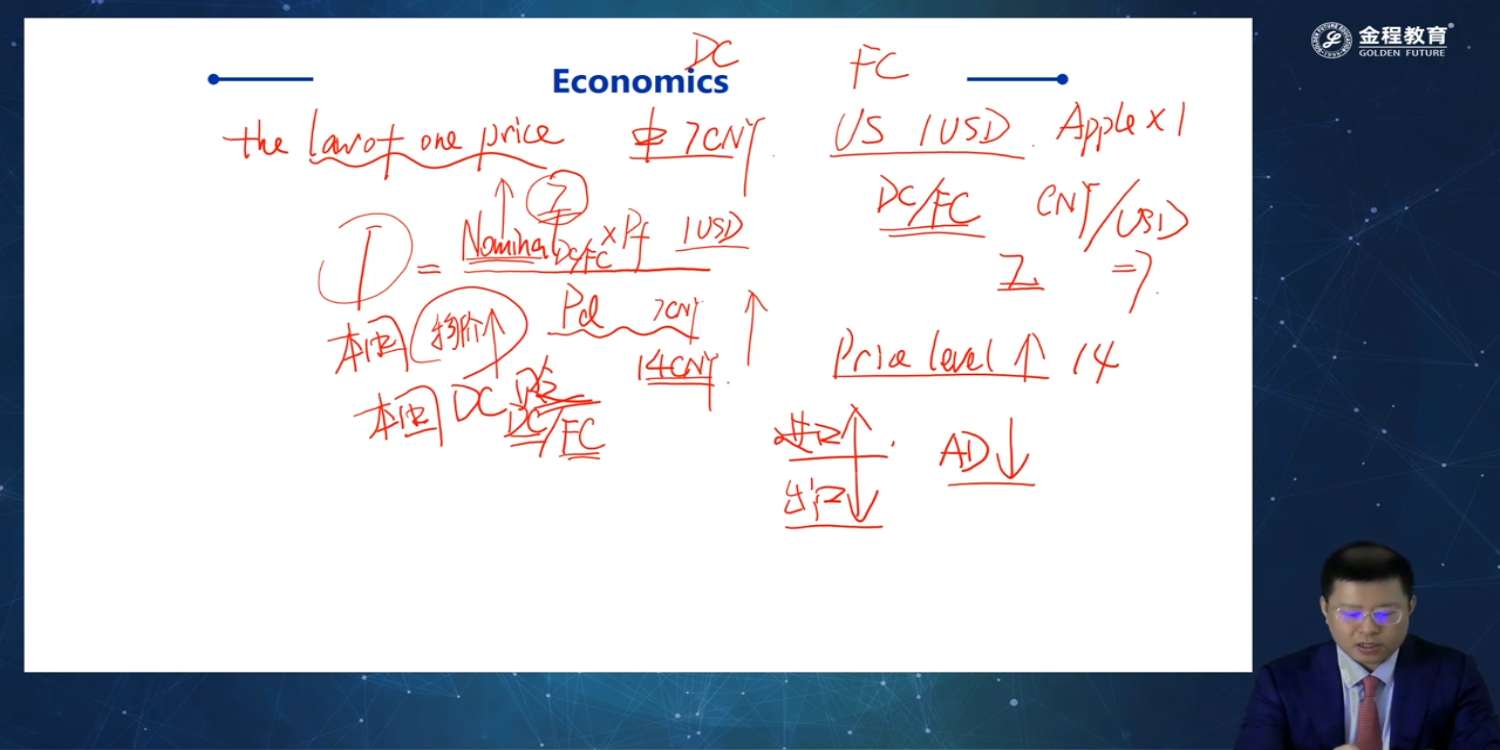 金程教育
GOLDEN FUTURE
DC
FC
Economics
the law of one price 中 7CNY US 1USD Apple×1
7
DC/FC CNY/USD
1 = Nominal DC/FC × Pf 1USD
7 =7
Pd 7CNY
本国 物价↑
14CNY
Price level ↑ 14
本国 DC
DC/FC
进口↑ AD↓
出口↓